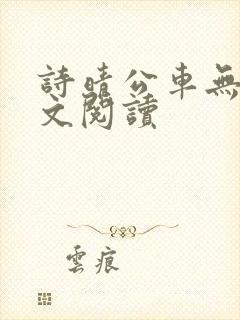 詩晴公車無
文閱讀
雲痕